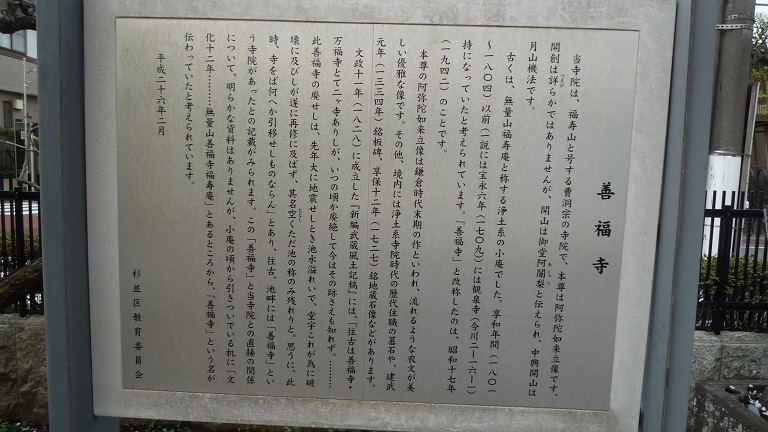 善福寺
当寺院は、福寿山と号する曹洞宗の寺院で、本尊は阿弥陀如来立像です。
開創は詳らかではありませんが、開山は御堂阿闍梨と伝えられ、中興開山は
月山機法です。
古くは、無量山福寿庵と称する浄土系の小庵でした。享和年間(一八〇一
〜一八〇四)以前(一説には宝永六年(一七〇九)には観泉寺(今川二ー一六ー一)
持になっていたと考えられています。「善福寺」と改称したのは、昭和十七年
(一九四二)のことです。
本尊の阿弥陀如来立像は鎌倉時代末期の作といわれ、流れるような衣文が美
しい優雅な像です。その他、境内には浄土系寺院時代の歴代住職の墓石や、建武
元年(一三三四年)銘板碑、享保十二年(一七二七)銘地蔵石像などがあります。
文政十一年(一八二八)に成立した『新編武蔵風土記稿』には、「往古は善福寺・
万福寺とて二ヶ寺ありしが、いつの頃か廃絶して今はその跡さえも知れず。………
此善福寺の廃せしは、先年大に地震せしとき池水溢れいで、堂宇これが為に破
壊に及びしが遂に再修に及ばず、其名空くただ池の称のみ残れりと、思うに、此
時、寺をば何へか引移せしものならん」とあり、往古、池畔には「善福寺」とい
う寺院があったとの記載がみられます。この「善福寺」と当寺院との直接の関係
について、明らかな資料はありませんが、小庵の頃から引きついでいる机に「文
化十二年………無量山善福寺福寿庵」とあるところから、「善福寺」という名が
伝わっていたと考えられています。
平成二十六年二月
杉並区教育委員会